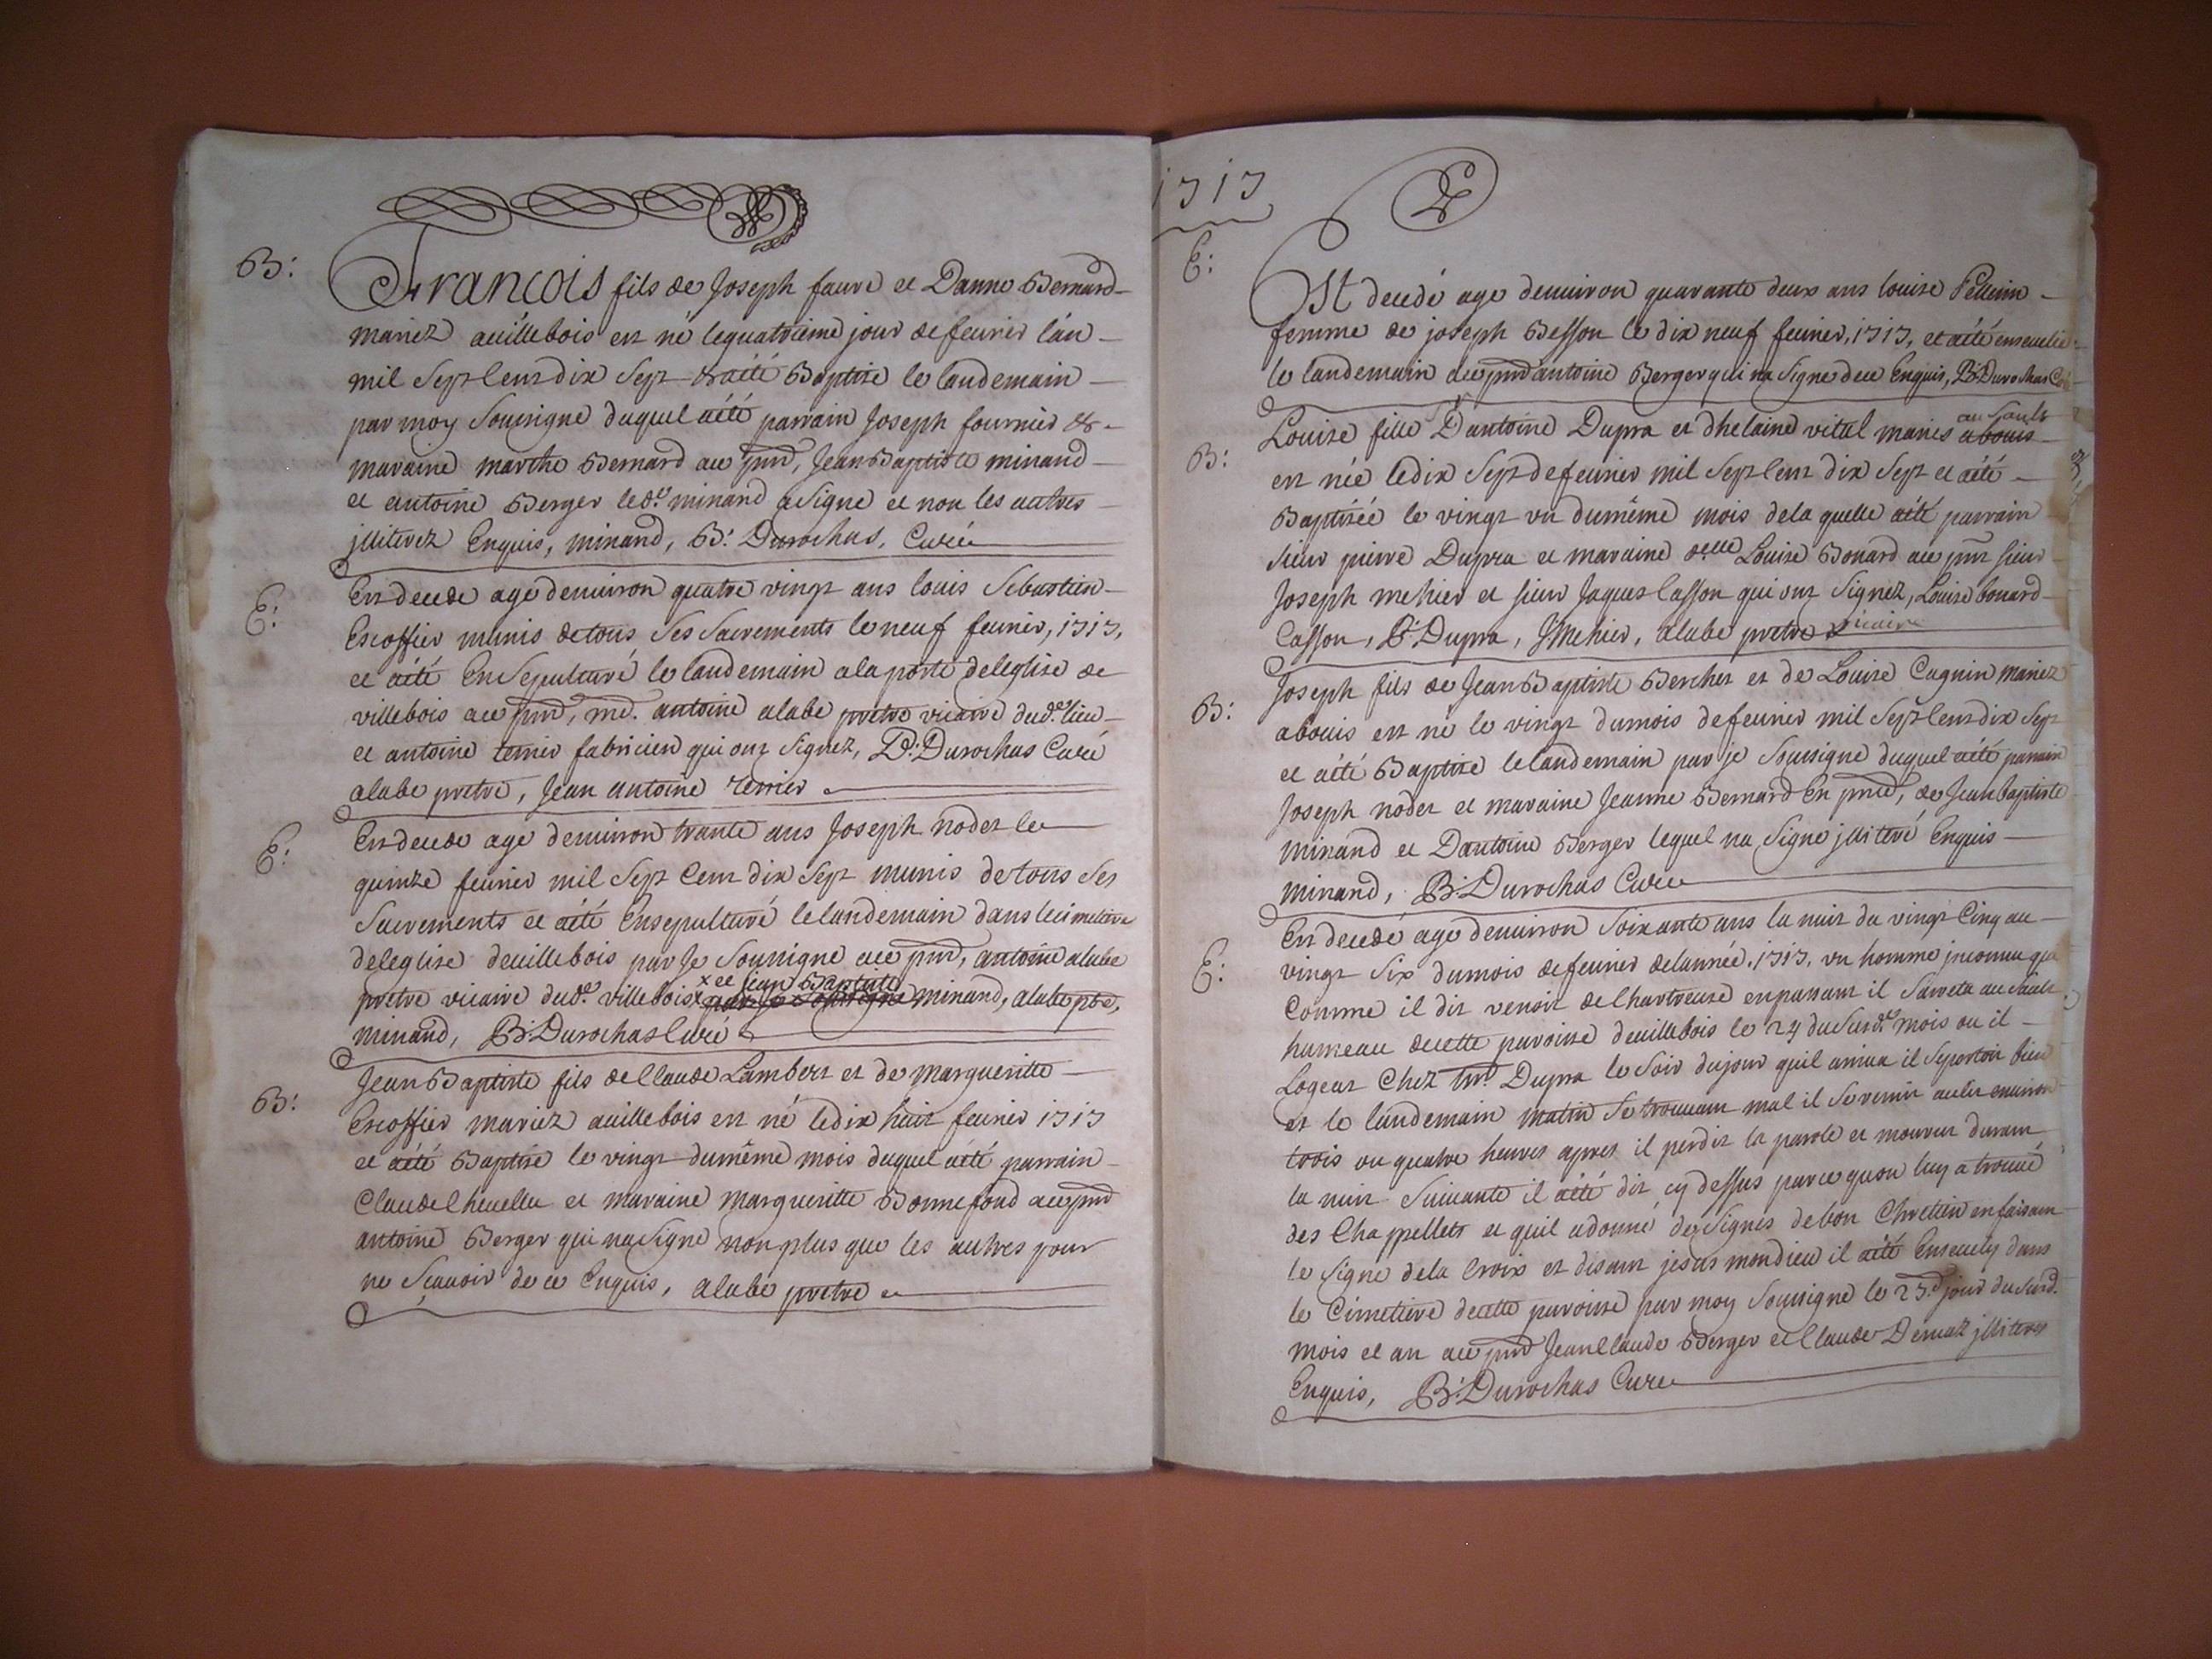 B:
François fils de Joseph faure et Danne Bernard
mariez auillebois est né lequatrieme jour de feurier lán
mil Sept Cent dix Sept & aété Baptise le landemain
par moy Sousigne duquel aété parrain Joseph fournier &
maraine marthe Bernard au pnd, Jean Baptiste minand
et antoine Berger led.t minand a Signe et non les autres
jlliterez Enquis, minand, B: Durochas, Curé
E:
Est decede age denuiron quatre vingt ans louis Sebastien
Escoffier munis detous Ses Sacrements le neuf feurier, 1717,
et aété EnSepulturé le landemain ala porte deleglise de
villebois au pnd, md. antoine alabe pretre vicaire dud.t lieu
et antoine terrier fabricien qui ont Signez, B: Durochas Curé
alabe pretre, Jean antoine terrier
E:
Est decede age denuiron trante ans Joseph nodet le
quinze feurier mil Sept Cent dix Sept munis detous Ses
Sacrements et aété Ensepulturé lelandemain dans lecimetiere
deleglise deuillebois par Je Soussigne au pnd, antoine alabe
x et jean Baptiste
pretre vicaire dud.t villebois x par je Soussigne minand, alabe pbre,
minand, B: Durochas Curé
B:
Jean Baptiste fils de Claude Lambert et de margueritte
Escoffier mariez auillebois est né ledix huit feurier 1717
et aété Baptisé le vingt dumême mois duquel aété parrain
Claude lheuellu et maraine margueritte Bonnefond au pnd
antoine Berger qui na Signe non plus que les autres pour
ne Sçauoir de ce Enquis, alabé pretre
1717
2
E:
Est decedé age denuiron quarante deux ans louise Pellerin
femme de joseph Besson le dix neuf feurier, 1717, et aété enseuelie
le landemain au pnd antoine Berger qui na Signe dece Enquis, B: Durochas Curé
au Sault
B:
Louise fille Dantoine Dupra et dhelaine vital maries abouis
est née ledix Sept defeurier mil Sept Cent dix Sept et aété
Baptisée le vingt vn dumême mois dela quelle aété parrain
sieur pierre Dupra et maraine delle Louise Bonard au pnt sieur
Joseph mehier et sieur Jaques Casson qui ont Signez, Louise bonard
Casson, P: Dupra, J Mehier, alabe pretre vicaire
B:
Joseph fils de Jean Baptiste Bercher et de Louise Cagnin mariez
abouis est né le vingt dumois defeurier mil Sept Cent dix Sept
et aété Baptise lelandemain par je Soussigne duquel aété parrain
Joseph nodet et maraine Jeanne Bernard En pnce, de Jean baptiste
minand et Dantoine Berger lequel na Signe jlliteré Enquis
minand, B: Durochas Curé
E:
Est decedé age denuiron Soixante ans la nuit du vingt Cinq au
vingt Six dumois defeurier delannée, 1717, vn homme jnconnu que
Comme il dit venoit de Chartreuse en passant il Sarreta au Sault
hameau decette paroisse deuillebois le 24 du Susd.t mois ou il
Logeat Chez Dupra le Soir dujour quil arriua il Seportoit bien
et le landemain matin Se trouuant mal il Se remit au lit enuiron
trois ou quatre heures apres il perdit la parole et mourut durant
la nuit Suiuante il aété dit cy dessus parce quon luy a trouué
des Chappellets et quil adonné des Signes debon Chretien enfaisant
le Signe dela Croix et disant jesus mondieu il aété Enseuely dans
le Cimetiere decette paroisse par moy Soussigne le 27.e jour du Susd.
mois et an au pnd Jean Claude Berger et Claude Demaz jlliteres
Enquis, B: Durochas Curé